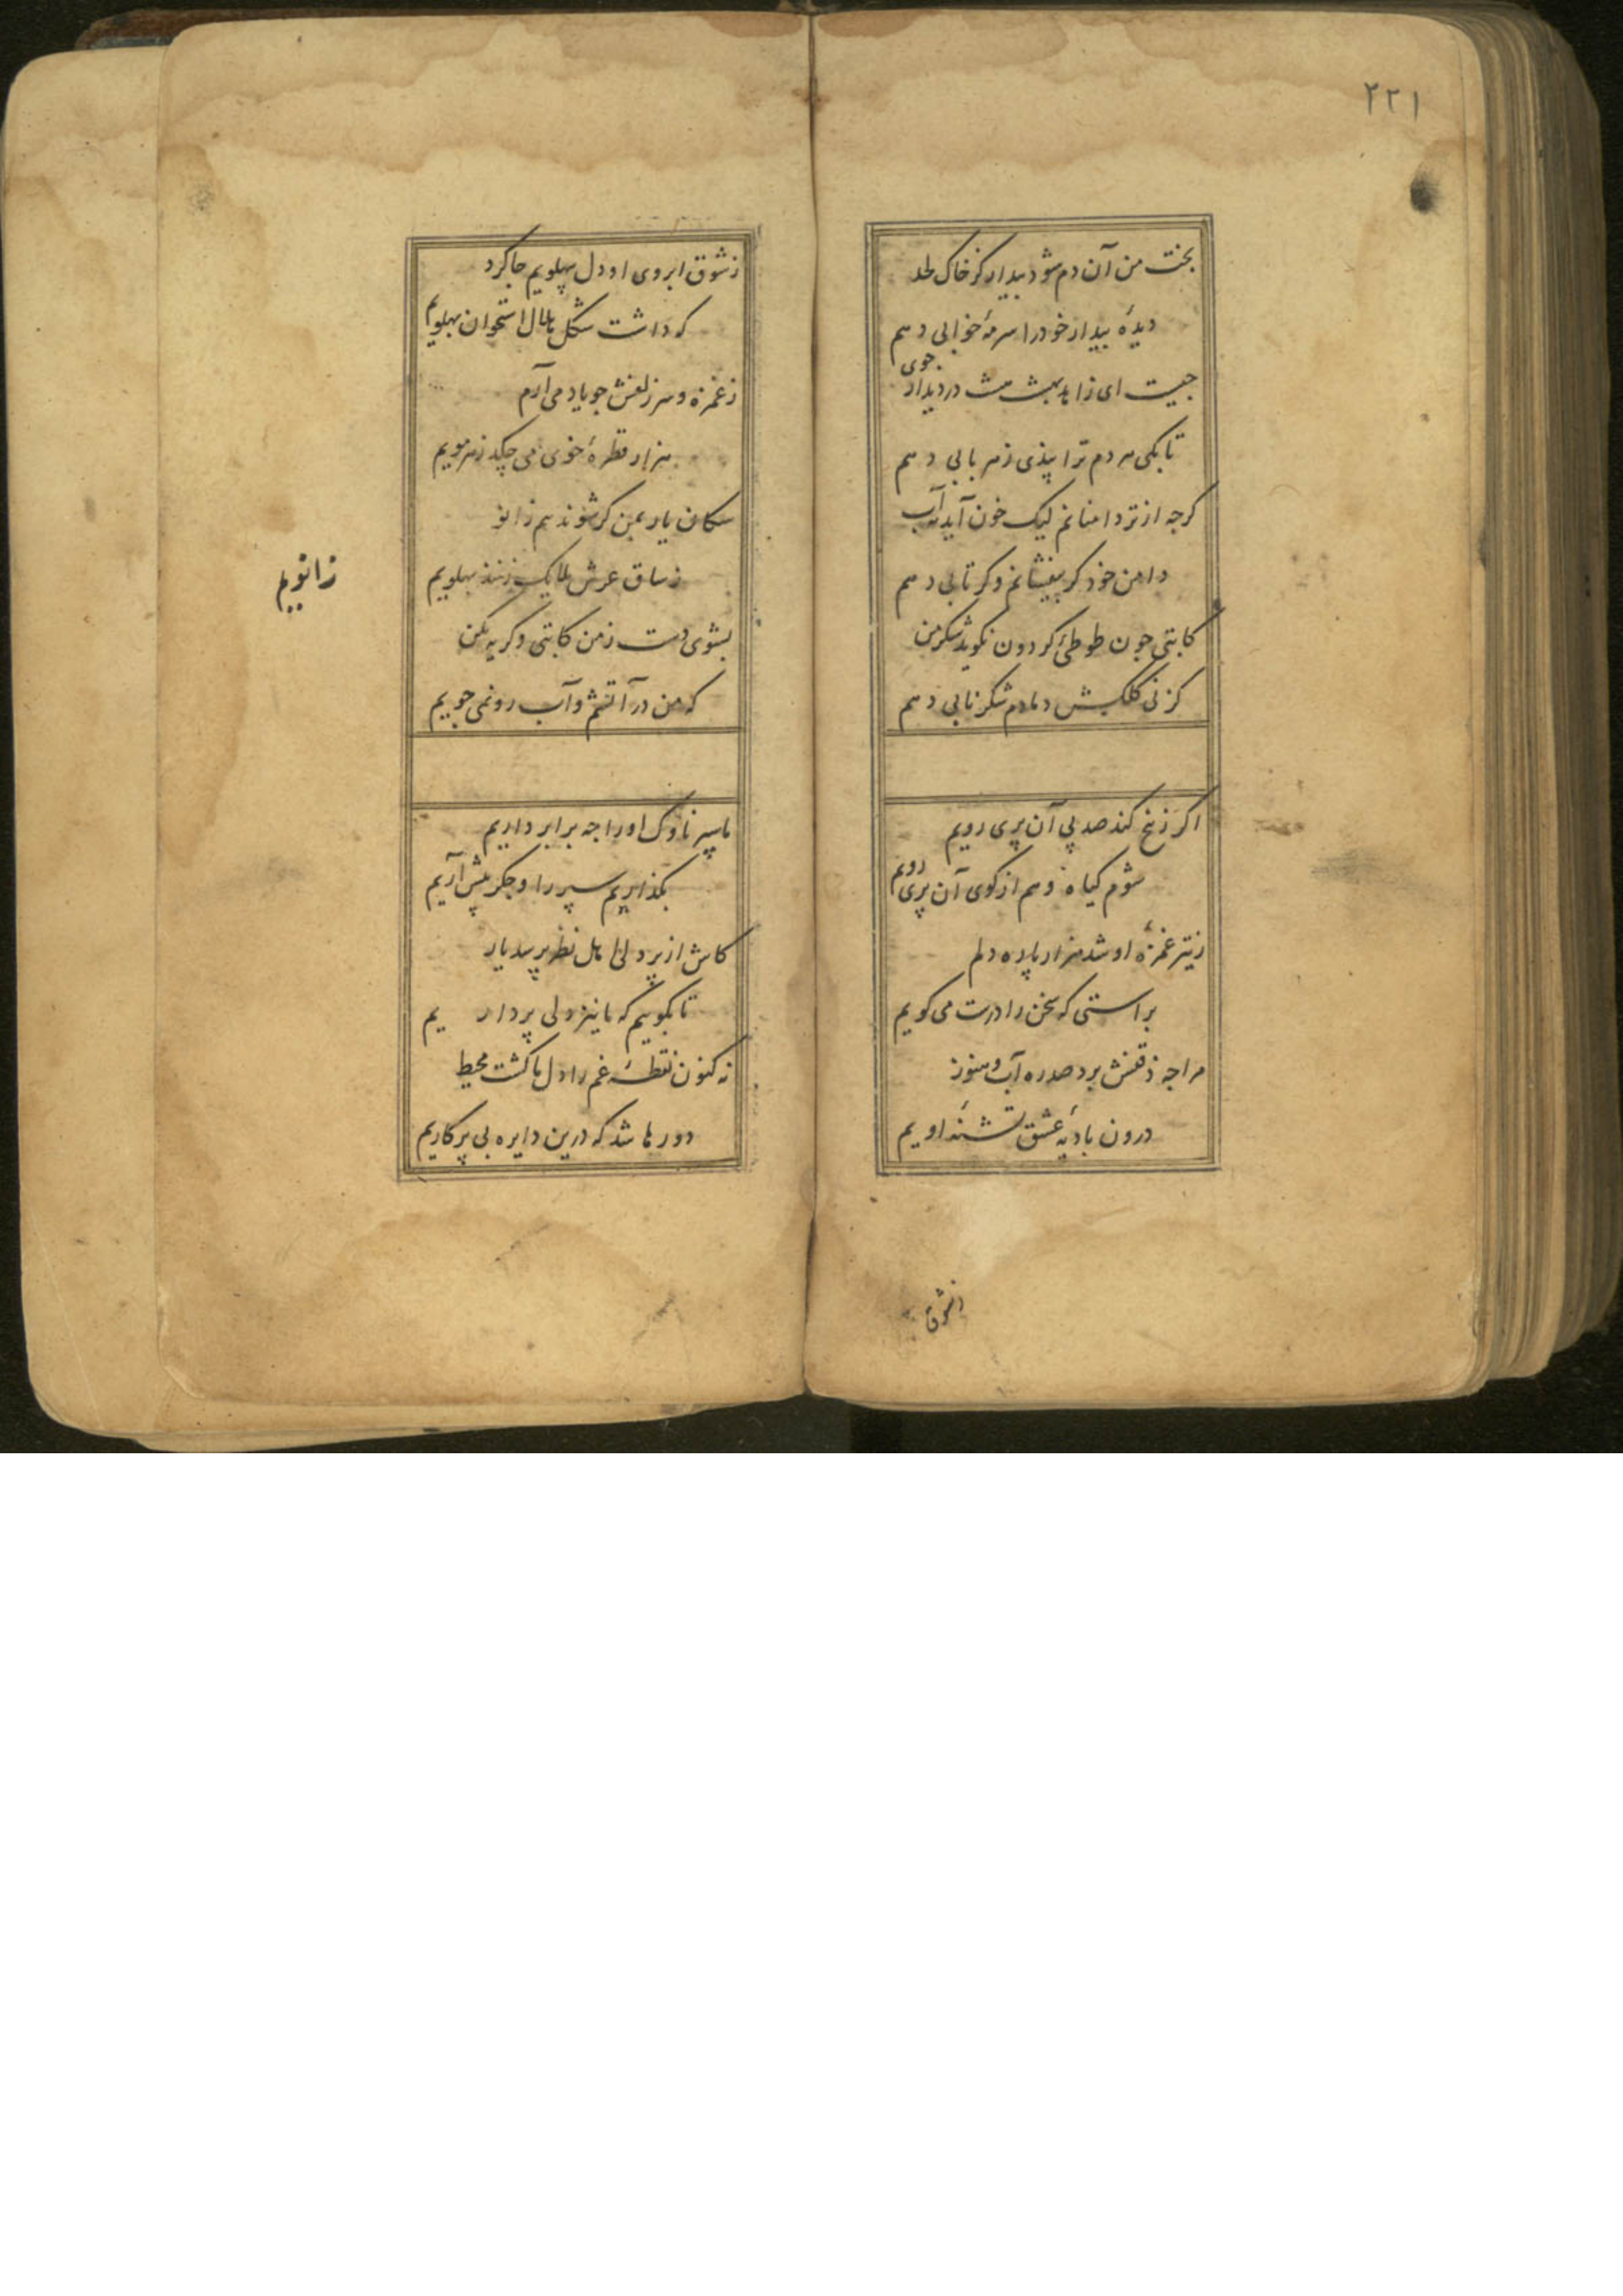 ۴۲۱
بخت من آن دم شود بیدار کز خاک لحد
دیدهٔ بیدار خود را سرمهٔ خوابی دهم
جیست ای زاهد بهشت مشت در دیدار جوی
تا بکی مردم ترا پندی زهر بابی دهم
کرجه از تردامنانم لیک خون آید نه آب
دامن خود کر بیفشانم و کر تابی دهم
کاتبی جون طوطئ کردون نکوید شکر من
کز نی کلکیش دمادم شکر نابی دهم
اکر ز نخ کند صد پی آن پری رویم
شوم کیاه و هم از کوی آن پری رویم
ز تیر غمزهٔ او شد هزار پاره دلم
براستی که سخن را درست می کویم
مرا جه ذقنش برد صد ره آب و هنوز
درون بادیهٔ عشق تشنهٔ اویم
زشوق
ز شوق ابروی او دل پهلویم جا کرد
که داشت شکل هلال استخوان پهلویم
ز غمزه و سر زلفش جو یاد می آرم
هزار قطرهٔ خوی می جکد ز هر مویم
سکان یار بمن کر شوند هم زانو
ز ساق عرش ملایک زنند پهلویم
زانویم
بشوی دست ز من کاتبی و کریه مکن
که من در آتشم و آب رو نمی جویم
ما سپر ناوک او را جه برابر داریم
بکذاریم سپر را و جکر پیش آریم
کاش از پر دلی اهل نظر پرسد یار
تا بکوییم که ما نیز دلی پر داریم
نه کنون نقطهٔ غم را دل ما کشت محیط
دورها شد که درین دایره بی پرکاریم